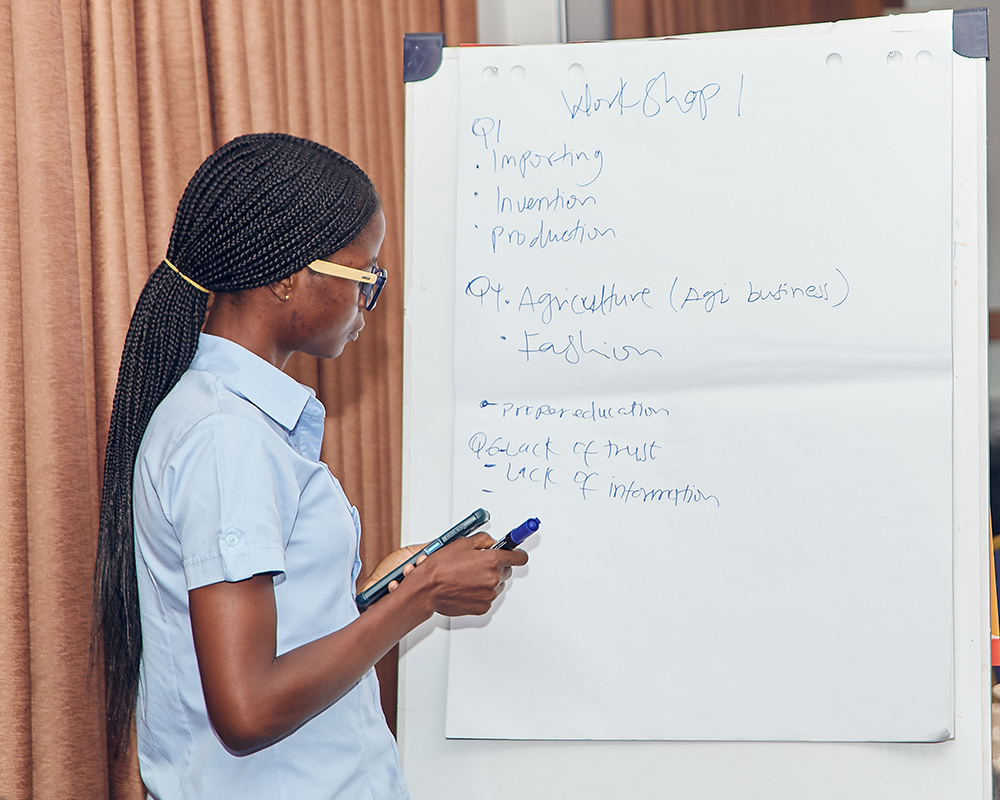 Workshop 1
Q1
• Importing
• Invention
• Production
Q4. Agriculture (Agi business)
• Fashion
- Proper education
Q6 - Lack of trust
- Lack of information
-